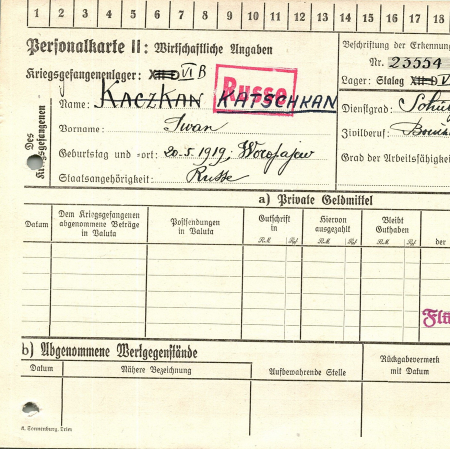 1 2 3 4 5 6 7 8 9 10 11 12 13 14 15 16 17 18
Personalkarte II: Wirtschaftliche Angaben
Beschriftung der Erkennung
Nr. 23554
Kriegsgefangenenlager: XII D VI B
Lager: Stalag XII D VI
Russe
Des Kriegsgefangenen
Name: KACZKAN KATSCHKAN
Dienstgrad:
Vorname: Iwan
Zivilberuf:
Geburtstag und -ort: 20.5.1919,
Grad der Arbeitsfähigkei
Staatsangehörigkeit: Russe
a) Private Geldmittel
Datum
Dem Kriegsgefangenen abgenommene Beträge in Valuta
Postsendungen in Valuta
Gutschrift in
RM Rpf
Hiervon ausgezahlt
RM Rpf
Bleibt Guthaben
RM Rpf
der
Flü
b) Abgenommene Wertgegenstände
Datum
Nähere Bezeichnung
Aufbewahrende Stelle
Rückgabevermerk mit Datum
A. Sonnenburg, Trier